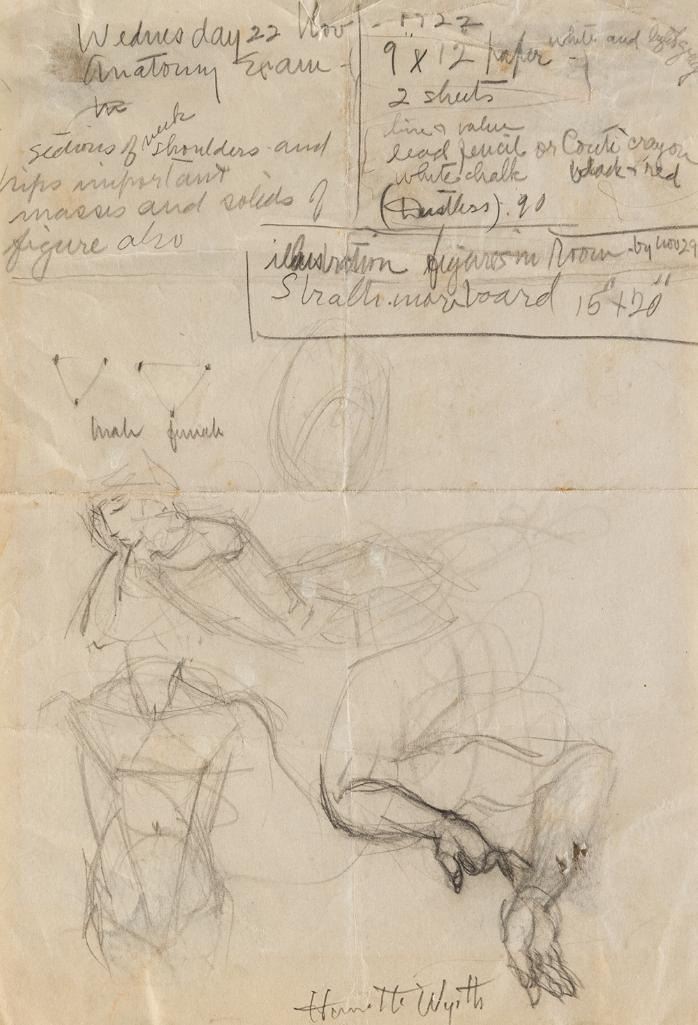 Wednesday 22 Nov - 1922
Anatomy Exam -
sections of neck shoulders and
hips important
masses and solids of
figure also
9" x 12 paper - white and light gray
2 sheets
line & value
lead pencil or Conti crayon
white chalk black & red
(Dustless) .90
illustration figures in Room - by Nov 29
Strathmore board 15" x 20"
male female
Henriette Wyeth